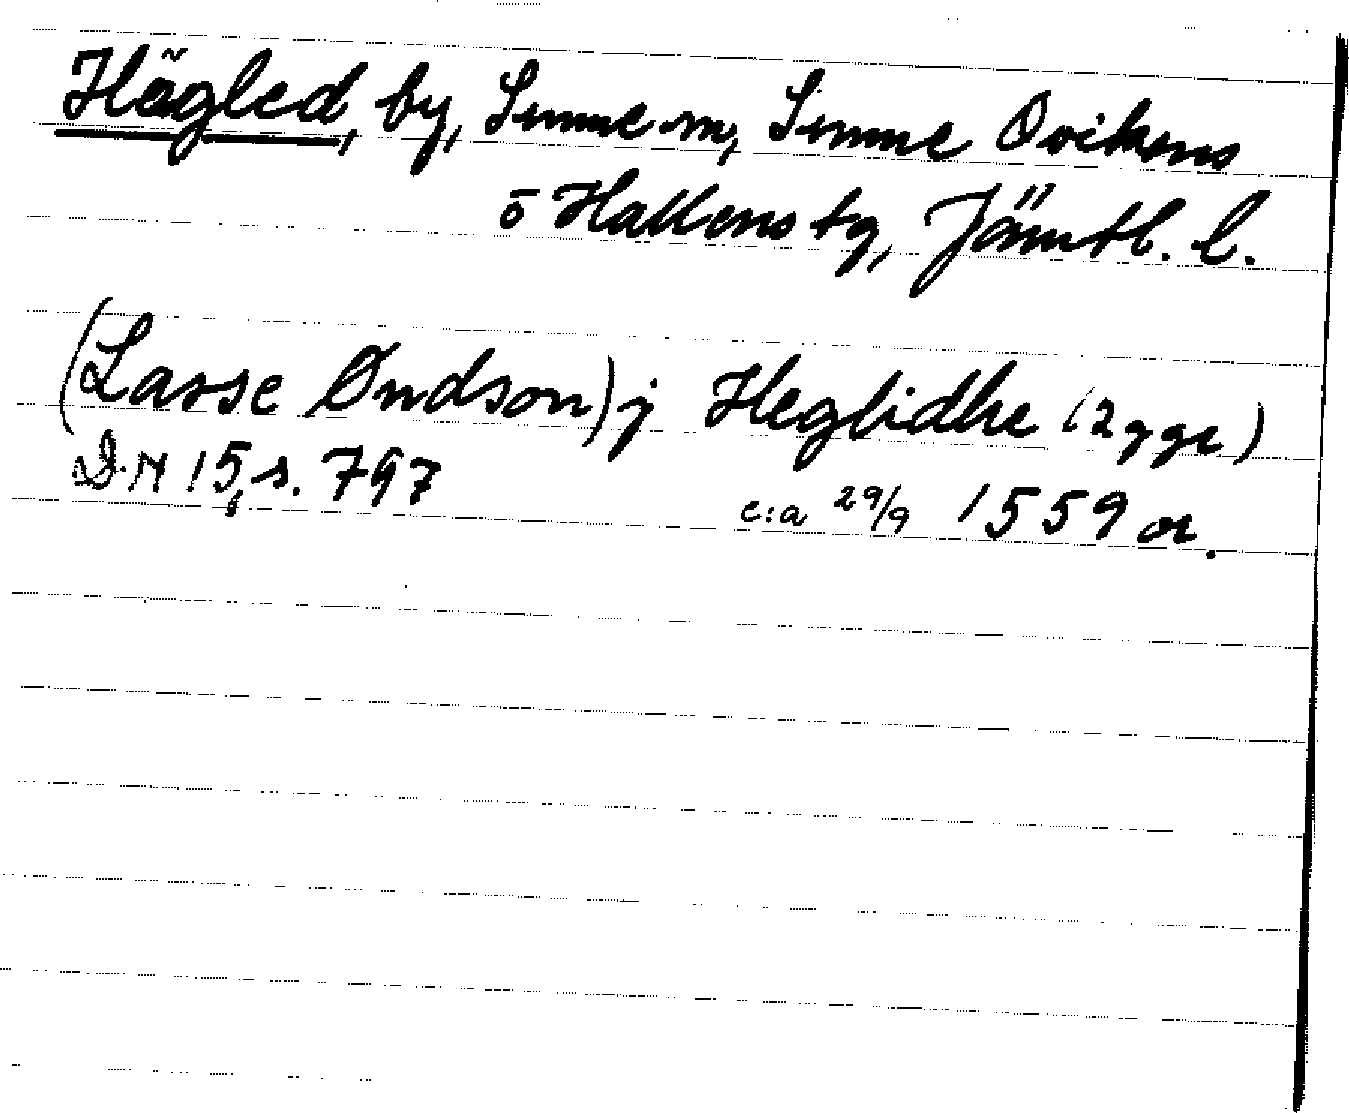 Hägled, by, Sunne sn, Sunne Ovikens
o Hallens tg, Jämtl. l.
(Lasse Øndson) j Heglidhe (2 ggr)
D.N 15, s. 797 c:a 29/9 1559 or.